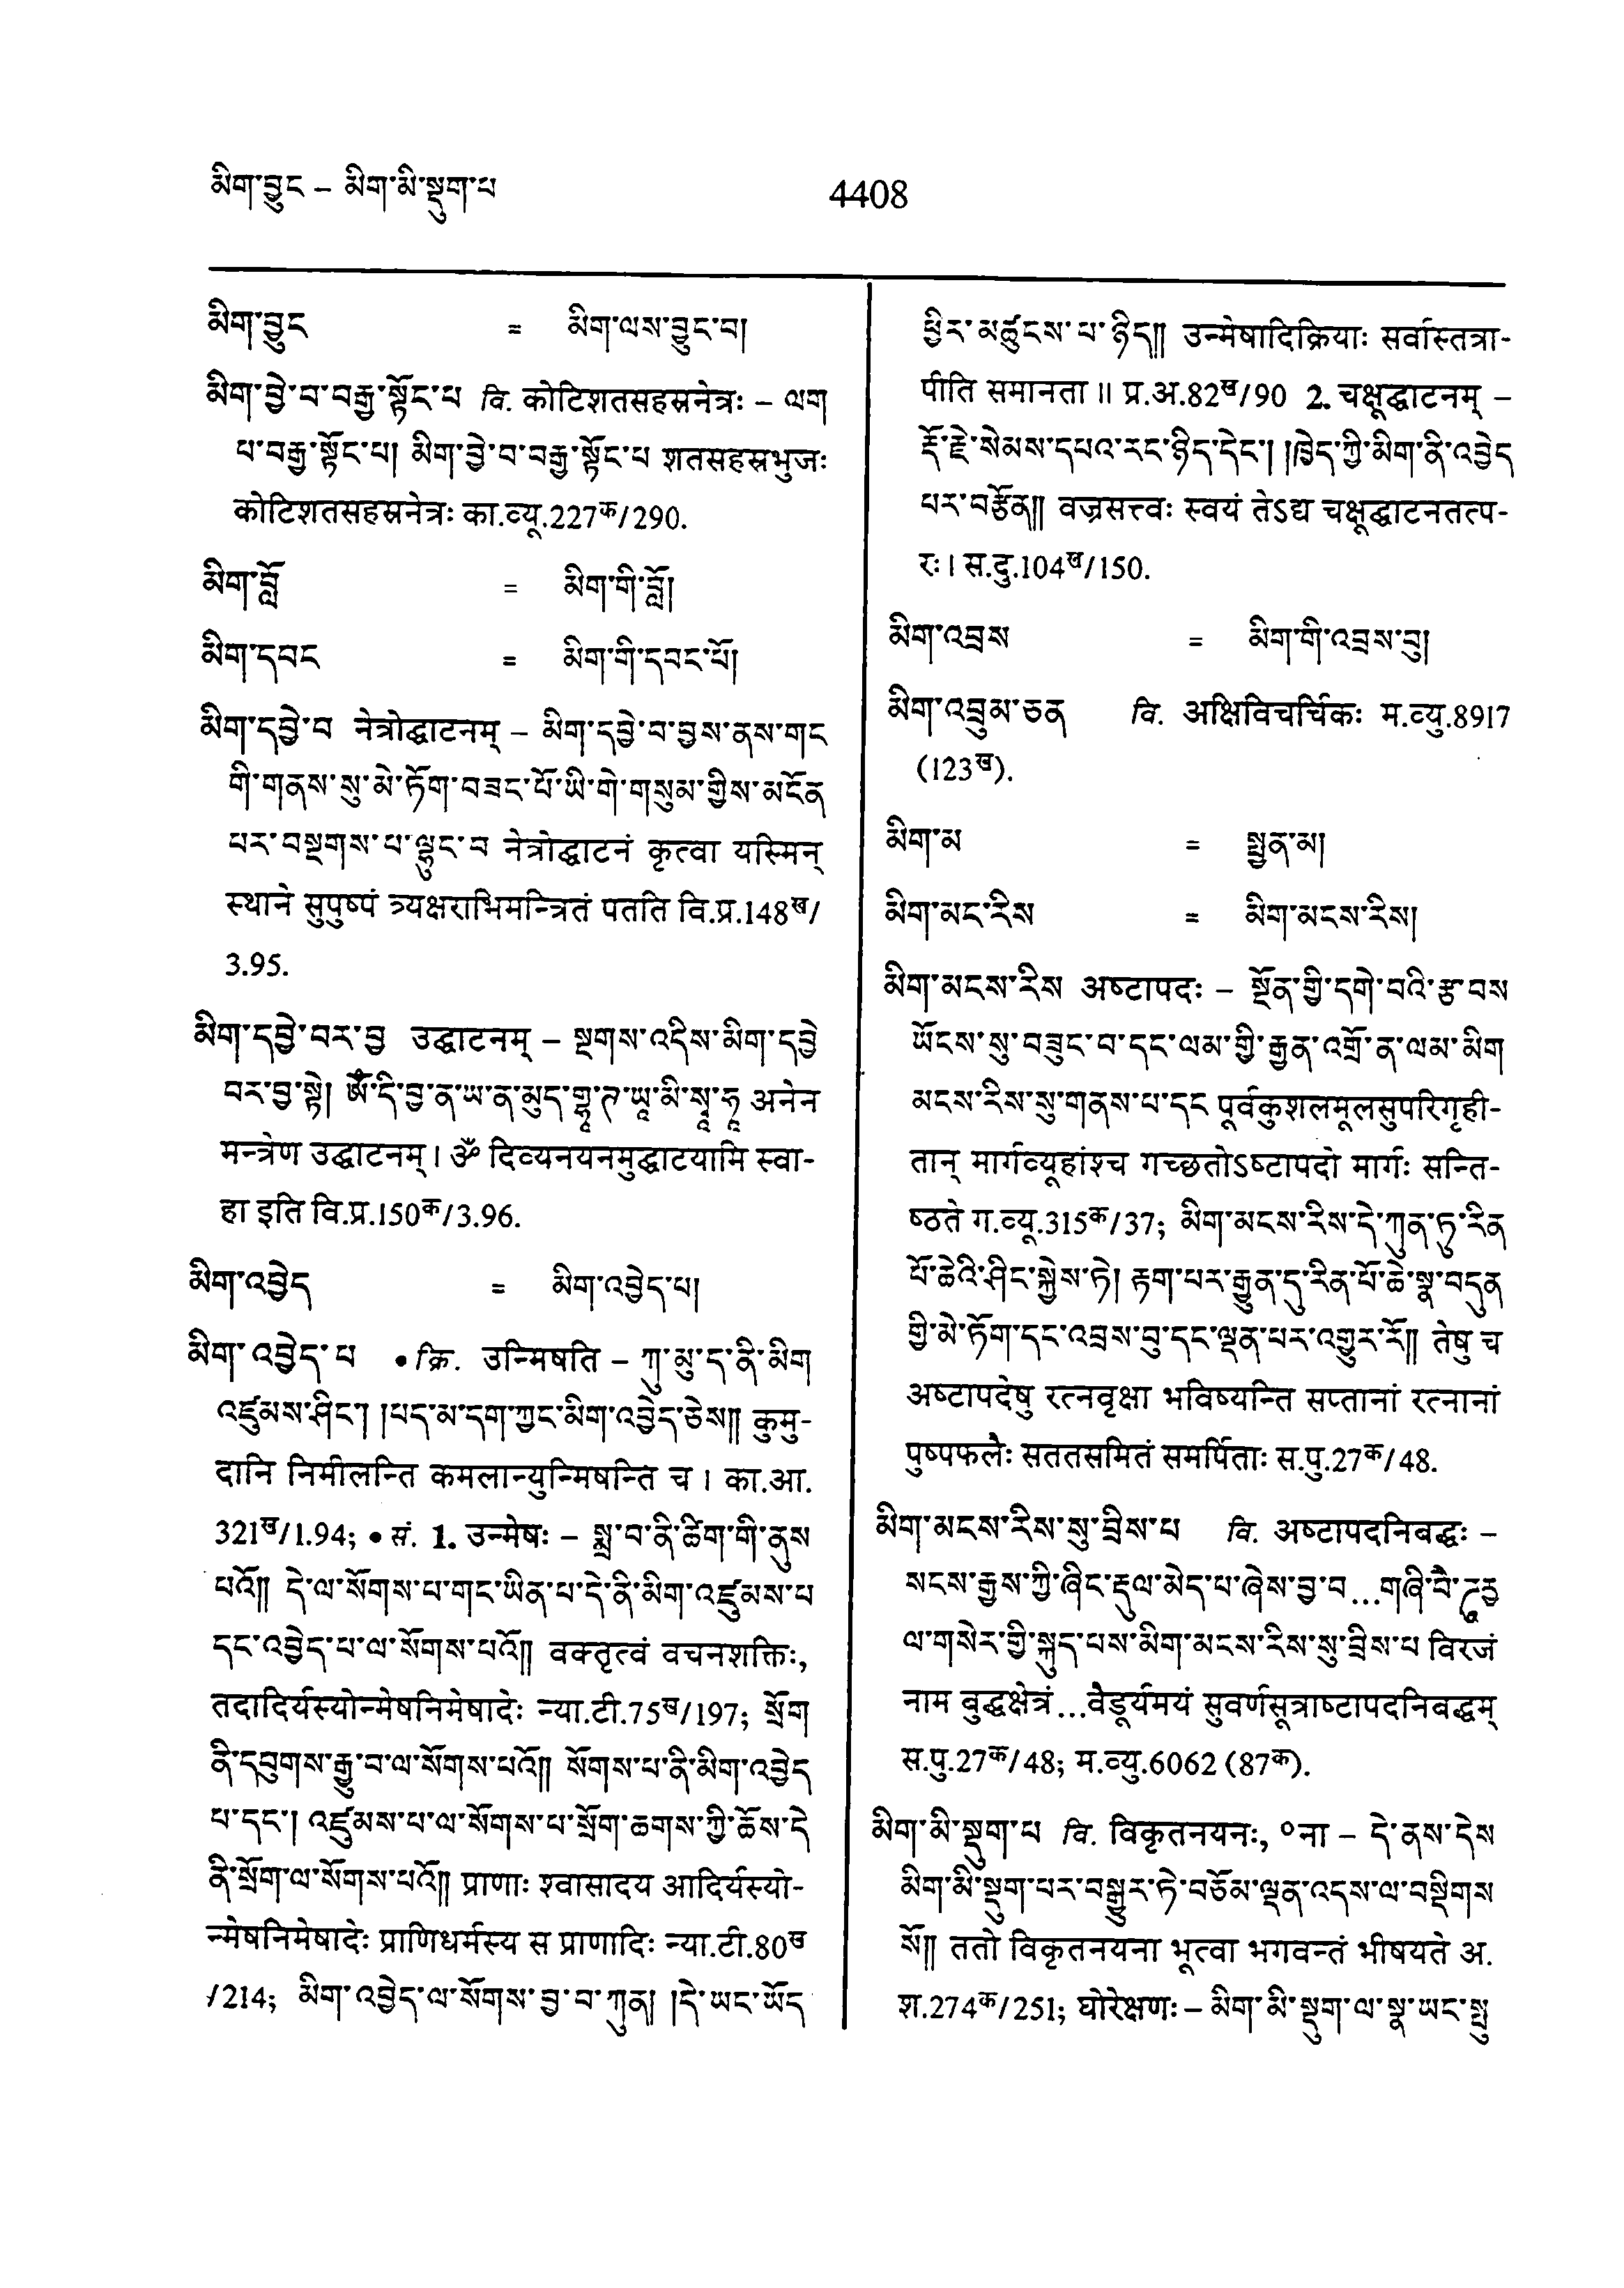 མིག་བྱུང – མིག་མི་སྡུག་པ
4408
མིག་བྱུང = མིག་ལས་བྱུང་བ།
མིག་བྱེ་བ་བརྒྱ་སྟོང་པ वि. कोटिशतसहस्रनेत्रः – ལག
པ་བརྒྱ་སྟོང་པ། མིག་བྱེ་བ་བརྒྱ་སྟོང་པ शतसहस्रभुजः
कोटिशतसहस्रनेत्रः का.व्यू.227क/290.
མིག་བློ = མིག་གི་བློ།
མིག་དབང = མིག་གི་དབང་པོ།
མིག་དབྱེ་བ नेत्रोद्घाटनम् – མིག་དབྱེ་བ་བྱས་ནས་གང
གི་གནས་སུ་མེ་ཏོག་བཟང་པོ་ཡི་གེ་གསུམ་གྱིས་མངོན
པར་བསྔགས་པ་ལྷུང་བ नेत्रोद्घाटनं कृत्वा यस्मिन्
स्थाने सुपुष्पं त्र्यक्षराभिमन्त्रितं पतति वि.प्र.148ख/
3.95.
མིག་དབྱེ་བར་བྱ उद्घाटनम् – སྔགས་འདིས་མིག་དབྱེ
བར་བྱ་སྟེ། ཨོཾ་དི་བྱ་ན་ཡ་ན་མུད་གྷཱ་ཊ་ཡཱ་མི་སྭཱ་ཧཱ अनेन
मन्त्रेण उद्घाटनम् । ॐ दिव्यनयनमुद्घाटयामि स्वा-
हा इति वि.प्र.150क/3.96.
མིག་འབྱེད = མིག་འབྱེད་པ།
མིག་འབྱེད་པ • क्रि. उन्मिषति – ཀུ་མུ་ད་ནི་མིག
འཛུམས་ཤིང་། །པད་མ་དག་ཀྱང་མིག་འབྱེད་ཅེས།། कुमु-
दानि निमीलन्ति कमलान्युन्मिषन्ति च । का.आ.
321ख/1.94; • सं. 1. उन्मेषः – སྨྲ་བ་ནི་ཚིག་གི་ནུས
པའོ།། དེ་ལ་སོགས་པ་གང་ཡིན་པ་དེ་ནི་མིག་འཛུམས་པ
དང་འབྱེད་པ་ལ་སོགས་པའོ།། वक्तृत्वं वचनशक्तिः,
तदादिर्यस्योन्मेषनिमेषादेः न्या.टी.75ख/197; སྲོག
ནི་དབུགས་རྒྱུ་བ་ལ་སོགས་པའོ།། སོགས་པ་ནི་མིག་འབྱེད
པ་དང་། འཛུམས་པ་ལ་སོགས་པ་སྲོག་ཆགས་ཀྱི་ཆོས་དེ
ནི་སྲོག་ལ་སོགས་པའོ།། प्राणाः श्वासादय आदिर्यस्यो-
न्मेषनिमेषादेः प्राणिधर्मस्य स प्राणादिः न्या.टी.80ख
/214; མིག་འབྱེད་ལ་སོགས་བྱ་བ་ཀུན། །དེ་ཡང་ཡོད
ཕྱིར་མཚུངས་པ་ཉིད།། उन्मेषादिक्रियाः सर्वास्तत्रा-
पीति समानता ॥ प्र.अ.82ख/90 2. चक्षूद्घाटनम् –
རྡོ་རྗེ་སེམས་དཔའ་རང་ཉིད་དེང་། །ཁྱེད་ཀྱི་མིག་ནི་འབྱེད
པར་བརྩོན།། वज्रसत्त्वः स्वयं तेऽद्य चक्षूद्घाटनतत्प-
रः । स.दु.104ख/150.
མིག་འབྲས = མིག་གི་འབྲས་བུ།
མིག་འབྲུམ་ཅན वि. अक्षिविचर्चिकः म.व्यु.8917
(123ख).
མིག་མ = སྤྱན་མ།
མིག་མང་རིས = མིག་མངས་རིས།
མིག་མངས་རིས अष्टापदः – སྔོན་གྱི་དགེ་བའི་རྩ་བས
ཡོངས་སུ་བཟུང་བ་དང་ལམ་གྱི་རྒྱན་འགྲོ་ན་ལམ་མིག
མངས་རིས་སུ་གནས་པ་དང पूर्वकुशलमूलसुपरिगृही-
तान् मार्गव्यूहांश्च गच्छतोऽष्टापदो मार्गः सन्ति-
ष्ठते ग.व्यू.315क/37; མིག་མངས་རིས་དེ་ཀུན་ཏུ་རིན
པོ་ཆེའི་ཤིང་སྐྱེས་ཏེ། རྟག་པར་རྒྱུན་དུ་རིན་པོ་ཆེ་སྣ་བདུན
གྱི་མེ་ཏོག་དང་འབྲས་བུ་དང་ལྡན་པར་འགྱུར་རོ།། तेषु च
अष्टापदेषु रत्नवृक्षा भविष्यन्ति सप्तानां रत्नानां
पुष्पफलैः सततसमितं समर्पिताः स.पु.27क/48.
མིག་མངས་རིས་སུ་བྲིས་པ वि. अष्टापदनिबद्धः –
སངས་རྒྱས་ཀྱི་ཞིང་རྡུལ་མེད་པ་ཞེས་བྱ་བ...གཞི་བཻ་ཌཱུརྱ
ལ་གསེར་གྱི་སྐུད་པས་མིག་མངས་རིས་སུ་བྲིས་པ विरजं
नाम बुद्धक्षेत्रं...वैडूर्यमयं सुवर्णसूत्राष्टापदनिबद्धम्
स.पु.27क/48; म.व्यु.6062 (87क).
མིག་མི་སྡུག་པ वि. विकृतनयनः, ०ना – དེ་ནས་དེས
མིག་མི་སྡུག་པར་བསྒྱུར་ཏེ་བཅོམ་ལྡན་འདས་ལ་བསྡིགས
སོ།། ततो विकृतनयना भूत्वा भगवन्तं भीषयते अ.
श.274क/251; घोरेक्षणः – མིག་མི་སྡུག་ལ་སྣ་ཡང་སྤུ